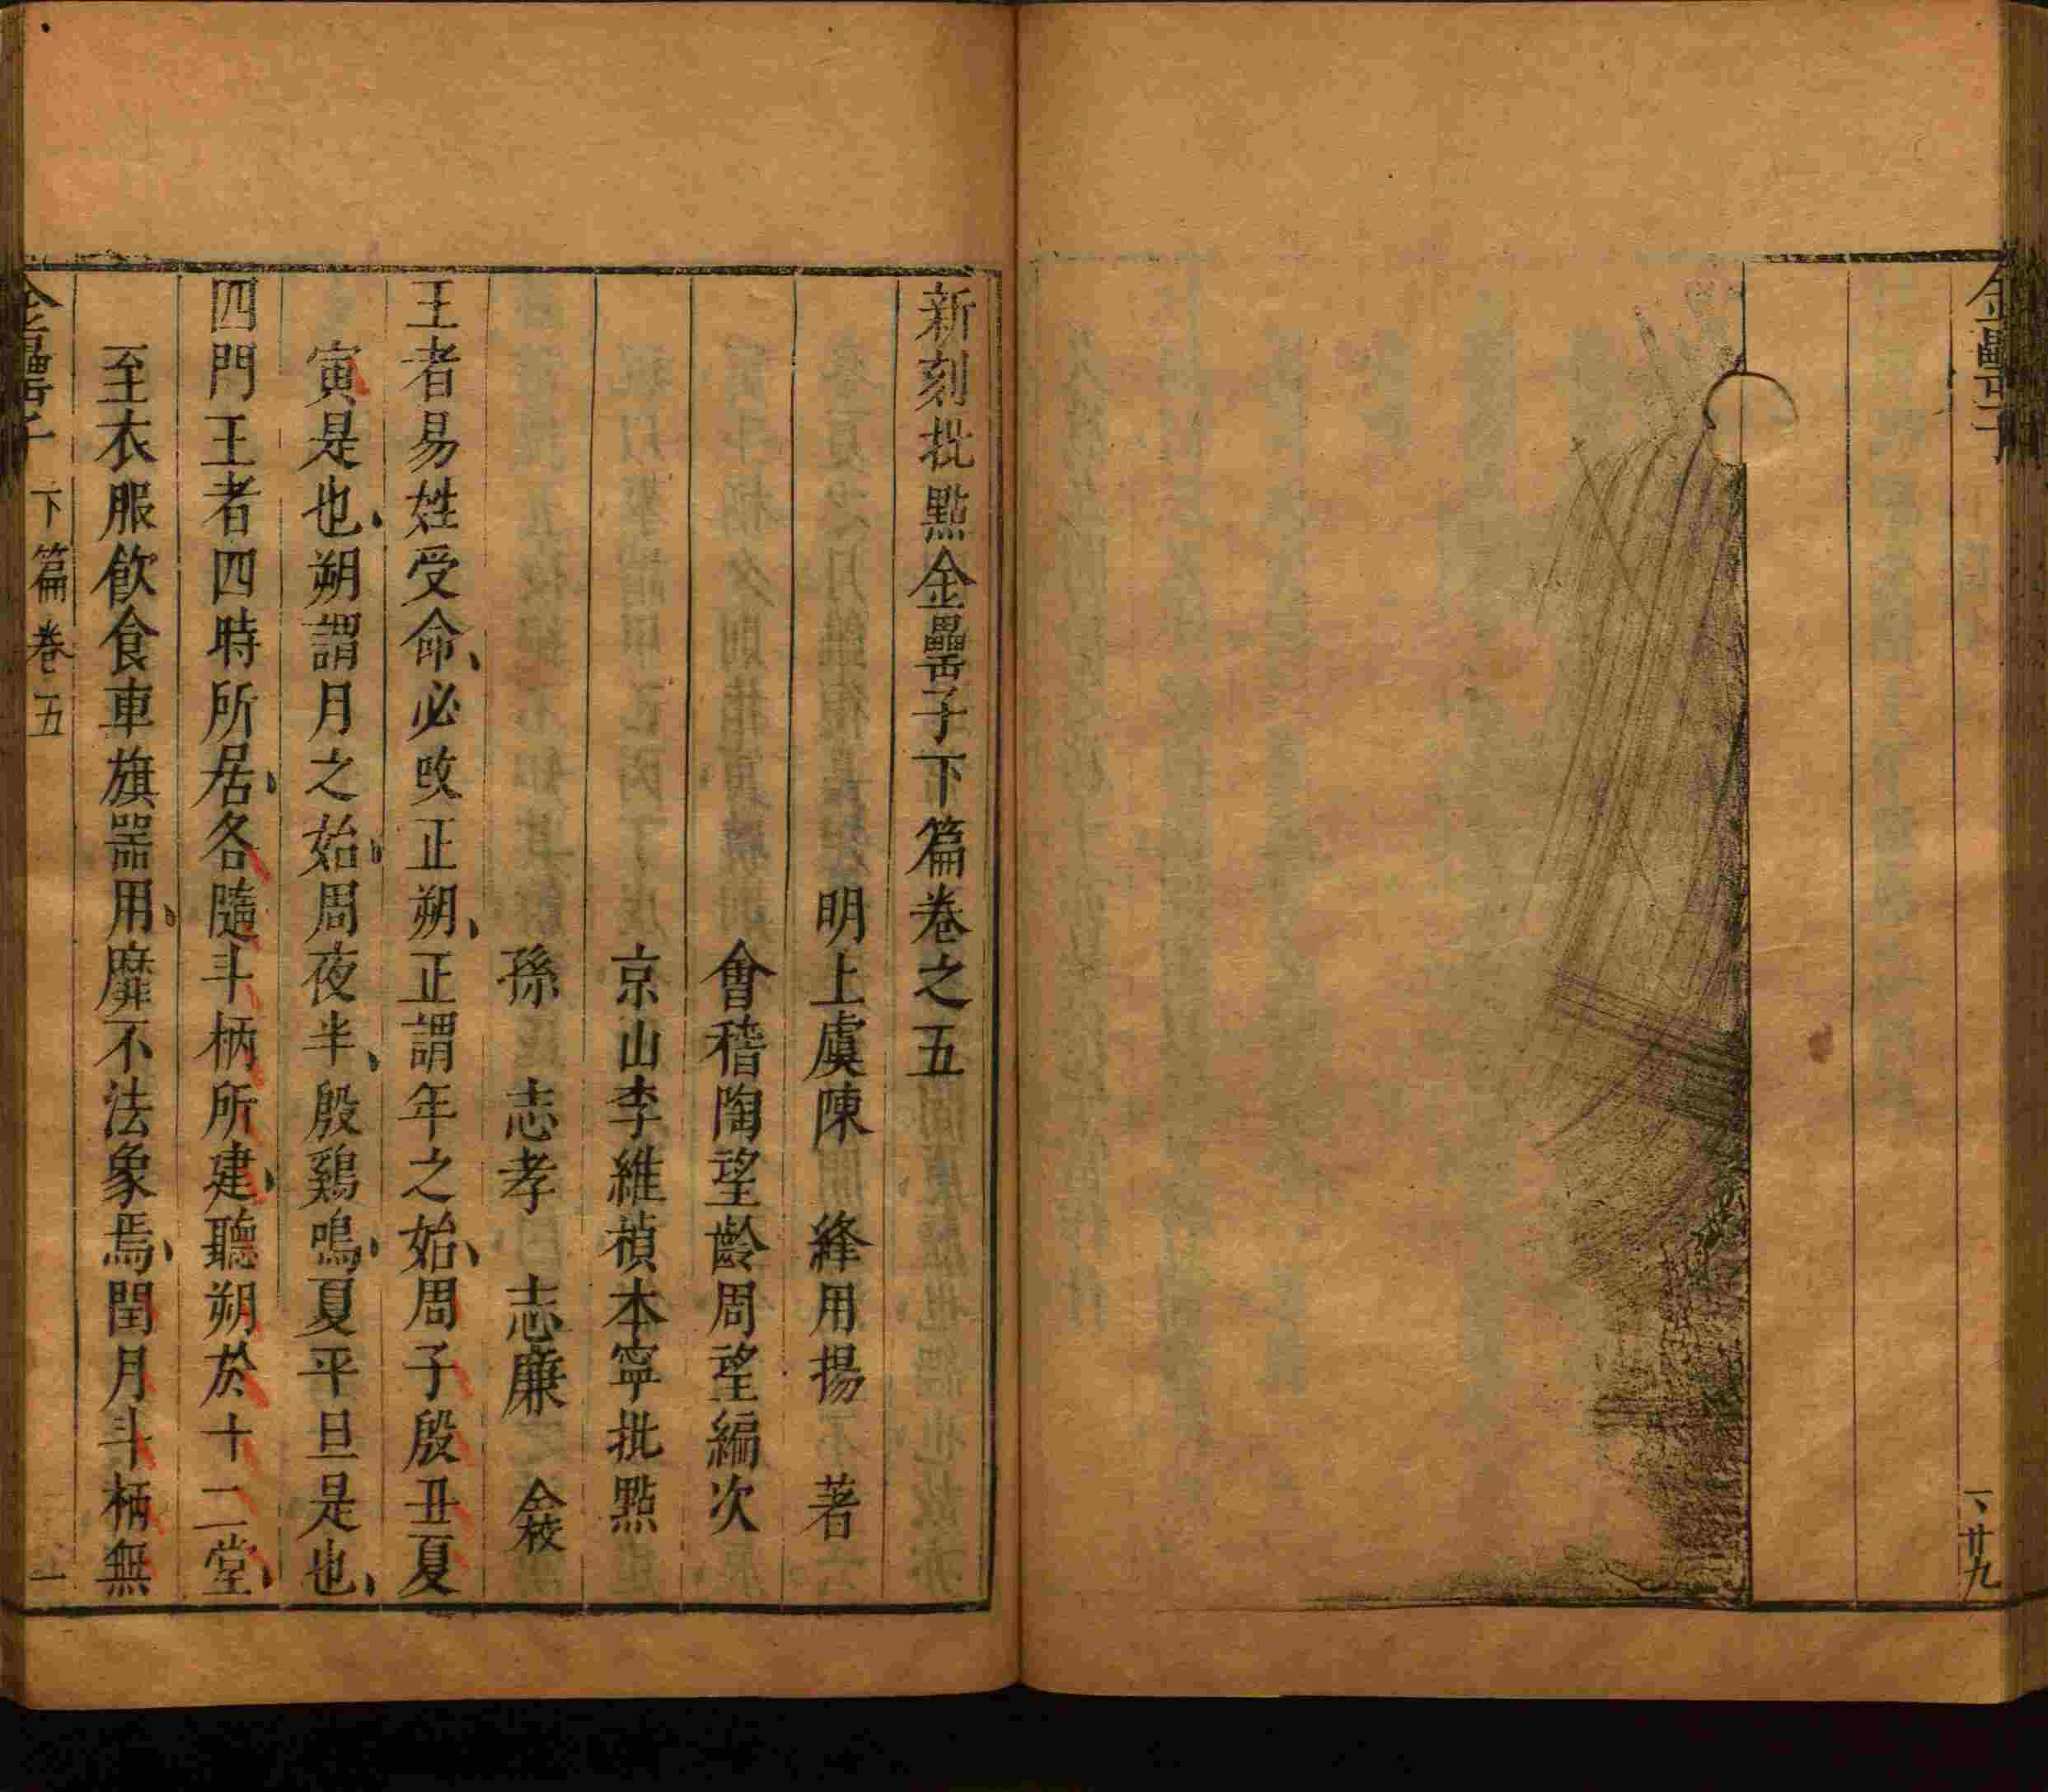 金罍子
廿九
新刻批點金罍子下篇卷之五
明上虞陳 絳用揚 著
會稽陶望齡周望編次
京山李維禎本寧批點
孫 志孝 志廉 仝校
王者易姓受命必改正朔正謂年之始周子殷丑夏
寅是也朔謂月之始周夜半殷鷄鳴夏平旦是也
四門王者四時所居各隨斗柄所建聽朔於十二堂
至衣服飲食車旗器用靡不法象焉閏月斗柄無
金罍子 下篇卷五 一